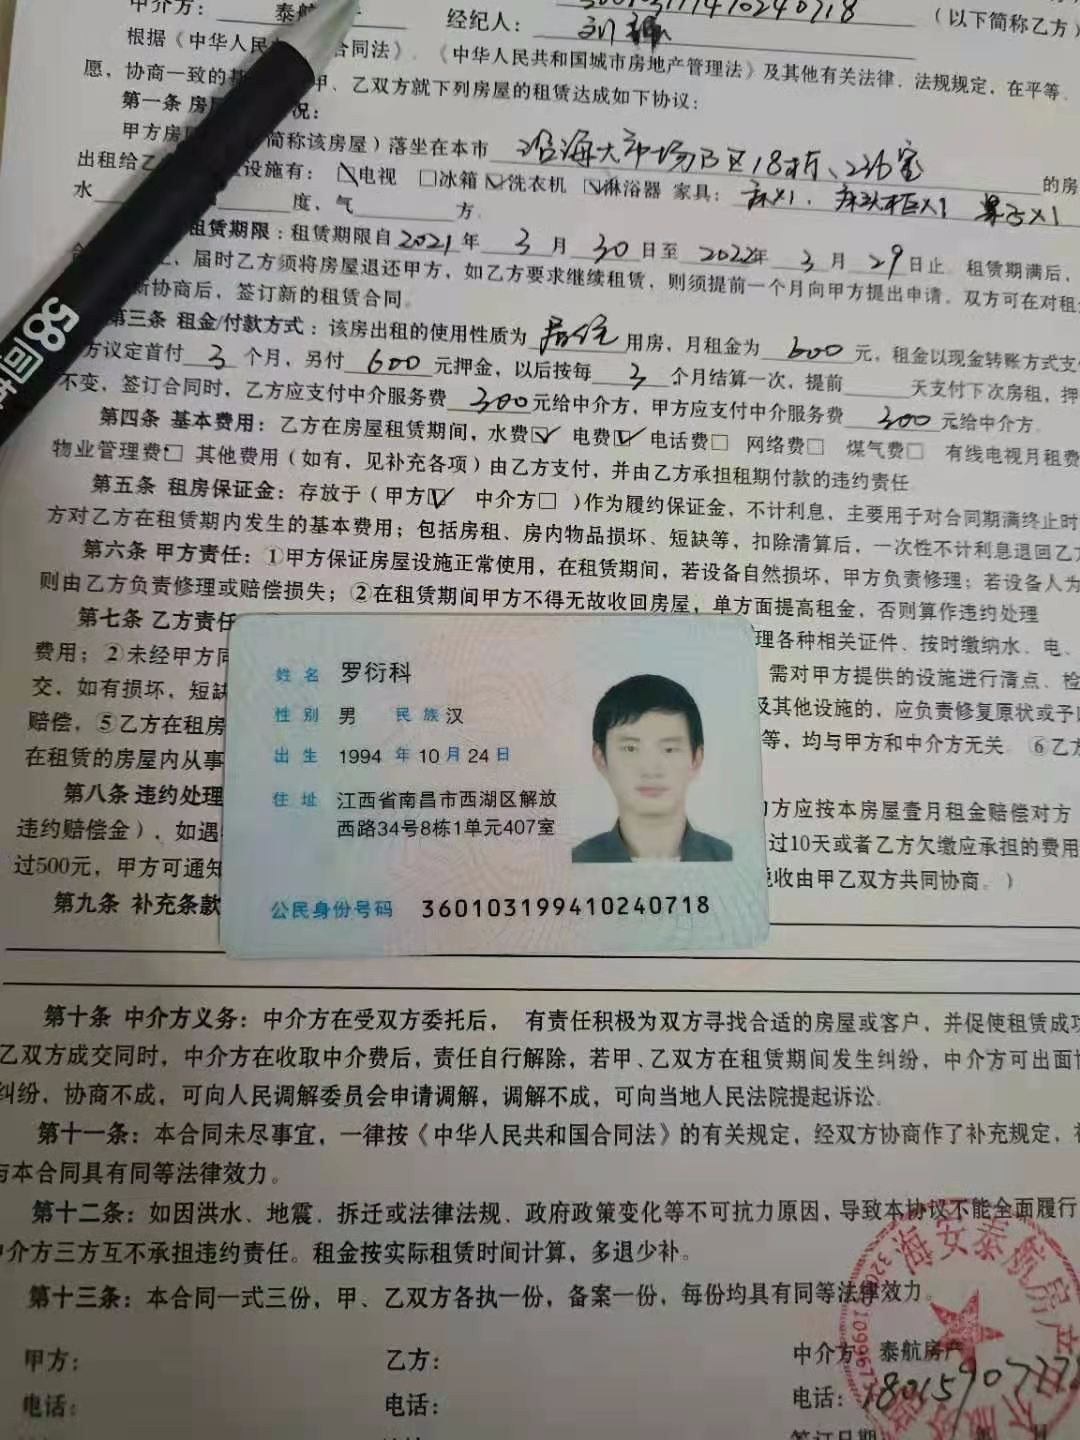 中介方：泰航 经纪人：刘 360103199410240718（以下简称乙方）
根据《中华人民 合同法》、《中华人民共和国城市房地产管理法》及其他有关法律、法规规定，在平等、
愿，协商一致的基 甲、乙双方就下列房屋的租赁达成如下协议：
第一条 房屋 况：
甲方房 简称该房屋）落坐在本市 沿海大市场B区18栋、236室 的房
出租给乙 设施有：☑电视 □冰箱 ☑洗衣机 ☑淋浴器 家具：床X1、床头柜X1 桌子X1
水 度、气 方。
租赁期限：租赁期限自2021年3月30日至2022年3月29日止。租赁期满后，
届时乙方须将房屋退还甲方，如乙方要求继续租赁，则须提前一个月向甲方提出申请。双方可在对租
新协商后，签订新的租赁合同。
第三条 租金/付款方式：该房出租的使用性质为 居住 用房，月租金为 600 元，租金以现金转账方式支
方议定首付 3 个月，另付 600 元押金，以后按每 3 个月结算一次，提前 天支付下次房租，押
不变，签订合同时，乙方应支付中介服务费 300 元给中介方，甲方应支付中介服务费 300 元给中介方。
第四条 基本费用：乙方在房屋租赁期间，水费☑ 电费☑ 电话费□ 网络费□ 煤气费□ 有线电视月租费
物业管理费□ 其他费用（如有，见补充各项）由乙方支付，并由乙方承担租期付款的违约责任
第五条 租房保证金：存放于（甲方☑ 中介方□ ）作为履约保证金，不计利息，主要用于对合同期满终止时
方对乙方在租赁期内发生的基本费用；包括房租、房内物品损坏、短缺等，扣除清算后，一次性不计利息退回乙方
第六条 甲方责任：①甲方保证房屋设施正常使用，在租赁期间，若设备自然损坏，甲方负责修理；若设备人为
则由乙方负责修理或赔偿损失；②在租赁期间甲方不得无故收回房屋，单方面提高租金，否则算作违约处理
第七条 乙方责任 理各种相关证件、按时缴纳水、电、
费用；②未经甲方同 需对甲方提供的设施进行清点、检
交，如有损坏，短缺 及其他设施的，应负责修复原状或予以
赔偿，⑤乙方在租房 等，均与甲方和中介方无关。⑥乙方
在租赁的房屋内从事
第八条 违约处理 方应按本房屋壹月租金赔偿对方
违约赔偿金），如遇 过10天或者乙方欠缴应承担的费用
过500元，甲方可通知 税收由甲乙双方共同协商。）
第九条 补充条款
姓名 罗衍科
性别 男 民族 汉
出生 1994年10月24日
住址 江西省南昌市西湖区解放
西路34号8栋1单元407室
公民身份号码 360103199410240718
第十条 中介方义务：中介方在受双方委托后， 有责任积极为双方寻找合适的房屋或客户，并促使租赁成功
乙双方成交同时，中介方在收取中介费后，责任自行解除，若甲、乙双方在租赁期间发生纠纷，中介方可出面协
纠纷，协商不成，可向人民调解委员会申请调解，调解不成，可向当地人民法院提起诉讼。
第十一条：本合同未尽事宜，一律按《中华人民共和国合同法》的有关规定，经双方协商作了补充规定，补
与本合同具有同等法律效力。
第十二条：如因洪水、地震、拆迁或法律法规、政府政策变化等不可抗力原因，导致本协议不能全面履行
中介方三方互不承担违约责任。租金按实际租赁时间计算，多退少补。
第十三条：本合同一式三份，甲、乙双方各执一份，备案一份，每份均具有同等法律效力。
甲方： 乙方： 中介方：泰航房产
电话： 电话： 电话：1801590
签订日期： 月
海安泰航房产
58同城